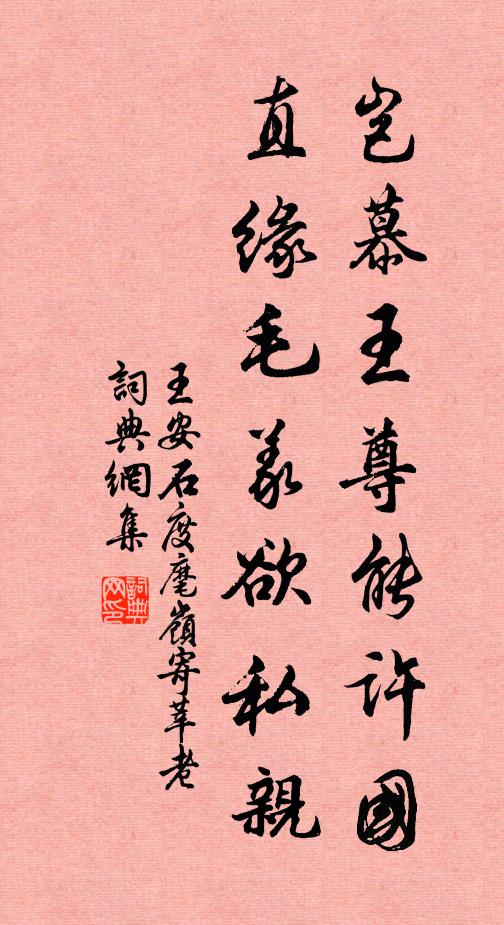 豈慕王尊能許國
直緣毛義欲私親
王安石度麾嶺寄莘老
詞典網集
詞典網印